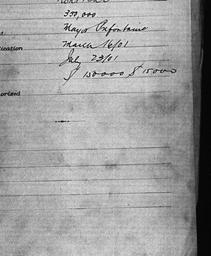 350,000
Mayor Prefontaine
ication March 16/01
July 23/01
$150000 $15000
orized